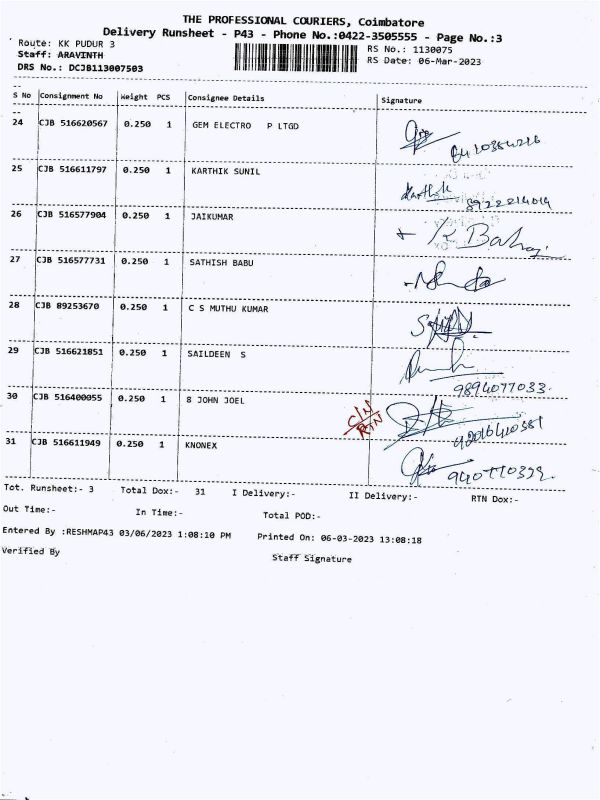 THE PROFESSIONAL COURIERS, Coimbatore
Delivery Runsheet - P43 - Phone No.:0422-3505555 - Page No.:3
Route: KK PUDUR 3
RS No.: 1130075
Staff: ARAVINTH
RS Date: 06-Mar-2023
DRS No.: DCJB113007503
S No Consignment No Weight PCS Consignee Details Signature
24 CJB 516620567 0.250 1 GEM ELECTRO P LTGD
25 CJB 516611797 0.250 1 KARTHIK SUNIL Karthik
26 CJB 516577904 0.250 1 JAIKUMAR
27 CJB 516577731 0.250 1 SATHISH BABU
28 CJB 89253670 0.250 1 C S MUTHU KUMAR
29 CJB 516621851 0.250 1 SAILDEEN S
9894077033
30 CJB 516400055 0.250 1 8 JOHN JOEL
31 CJB 516611949 0.250 1 KNONEX
Tot. Runsheet:- 3 Total Dox:- 31 I Delivery:- II Delivery:- RTN Dox:-
Out Time:- In Time:- Total POD:-
Entered By :RESHMAP43 03/06/2023 1:08:10 PM Printed On: 06-03-2023 13:08:18
Verified By Staff Signature